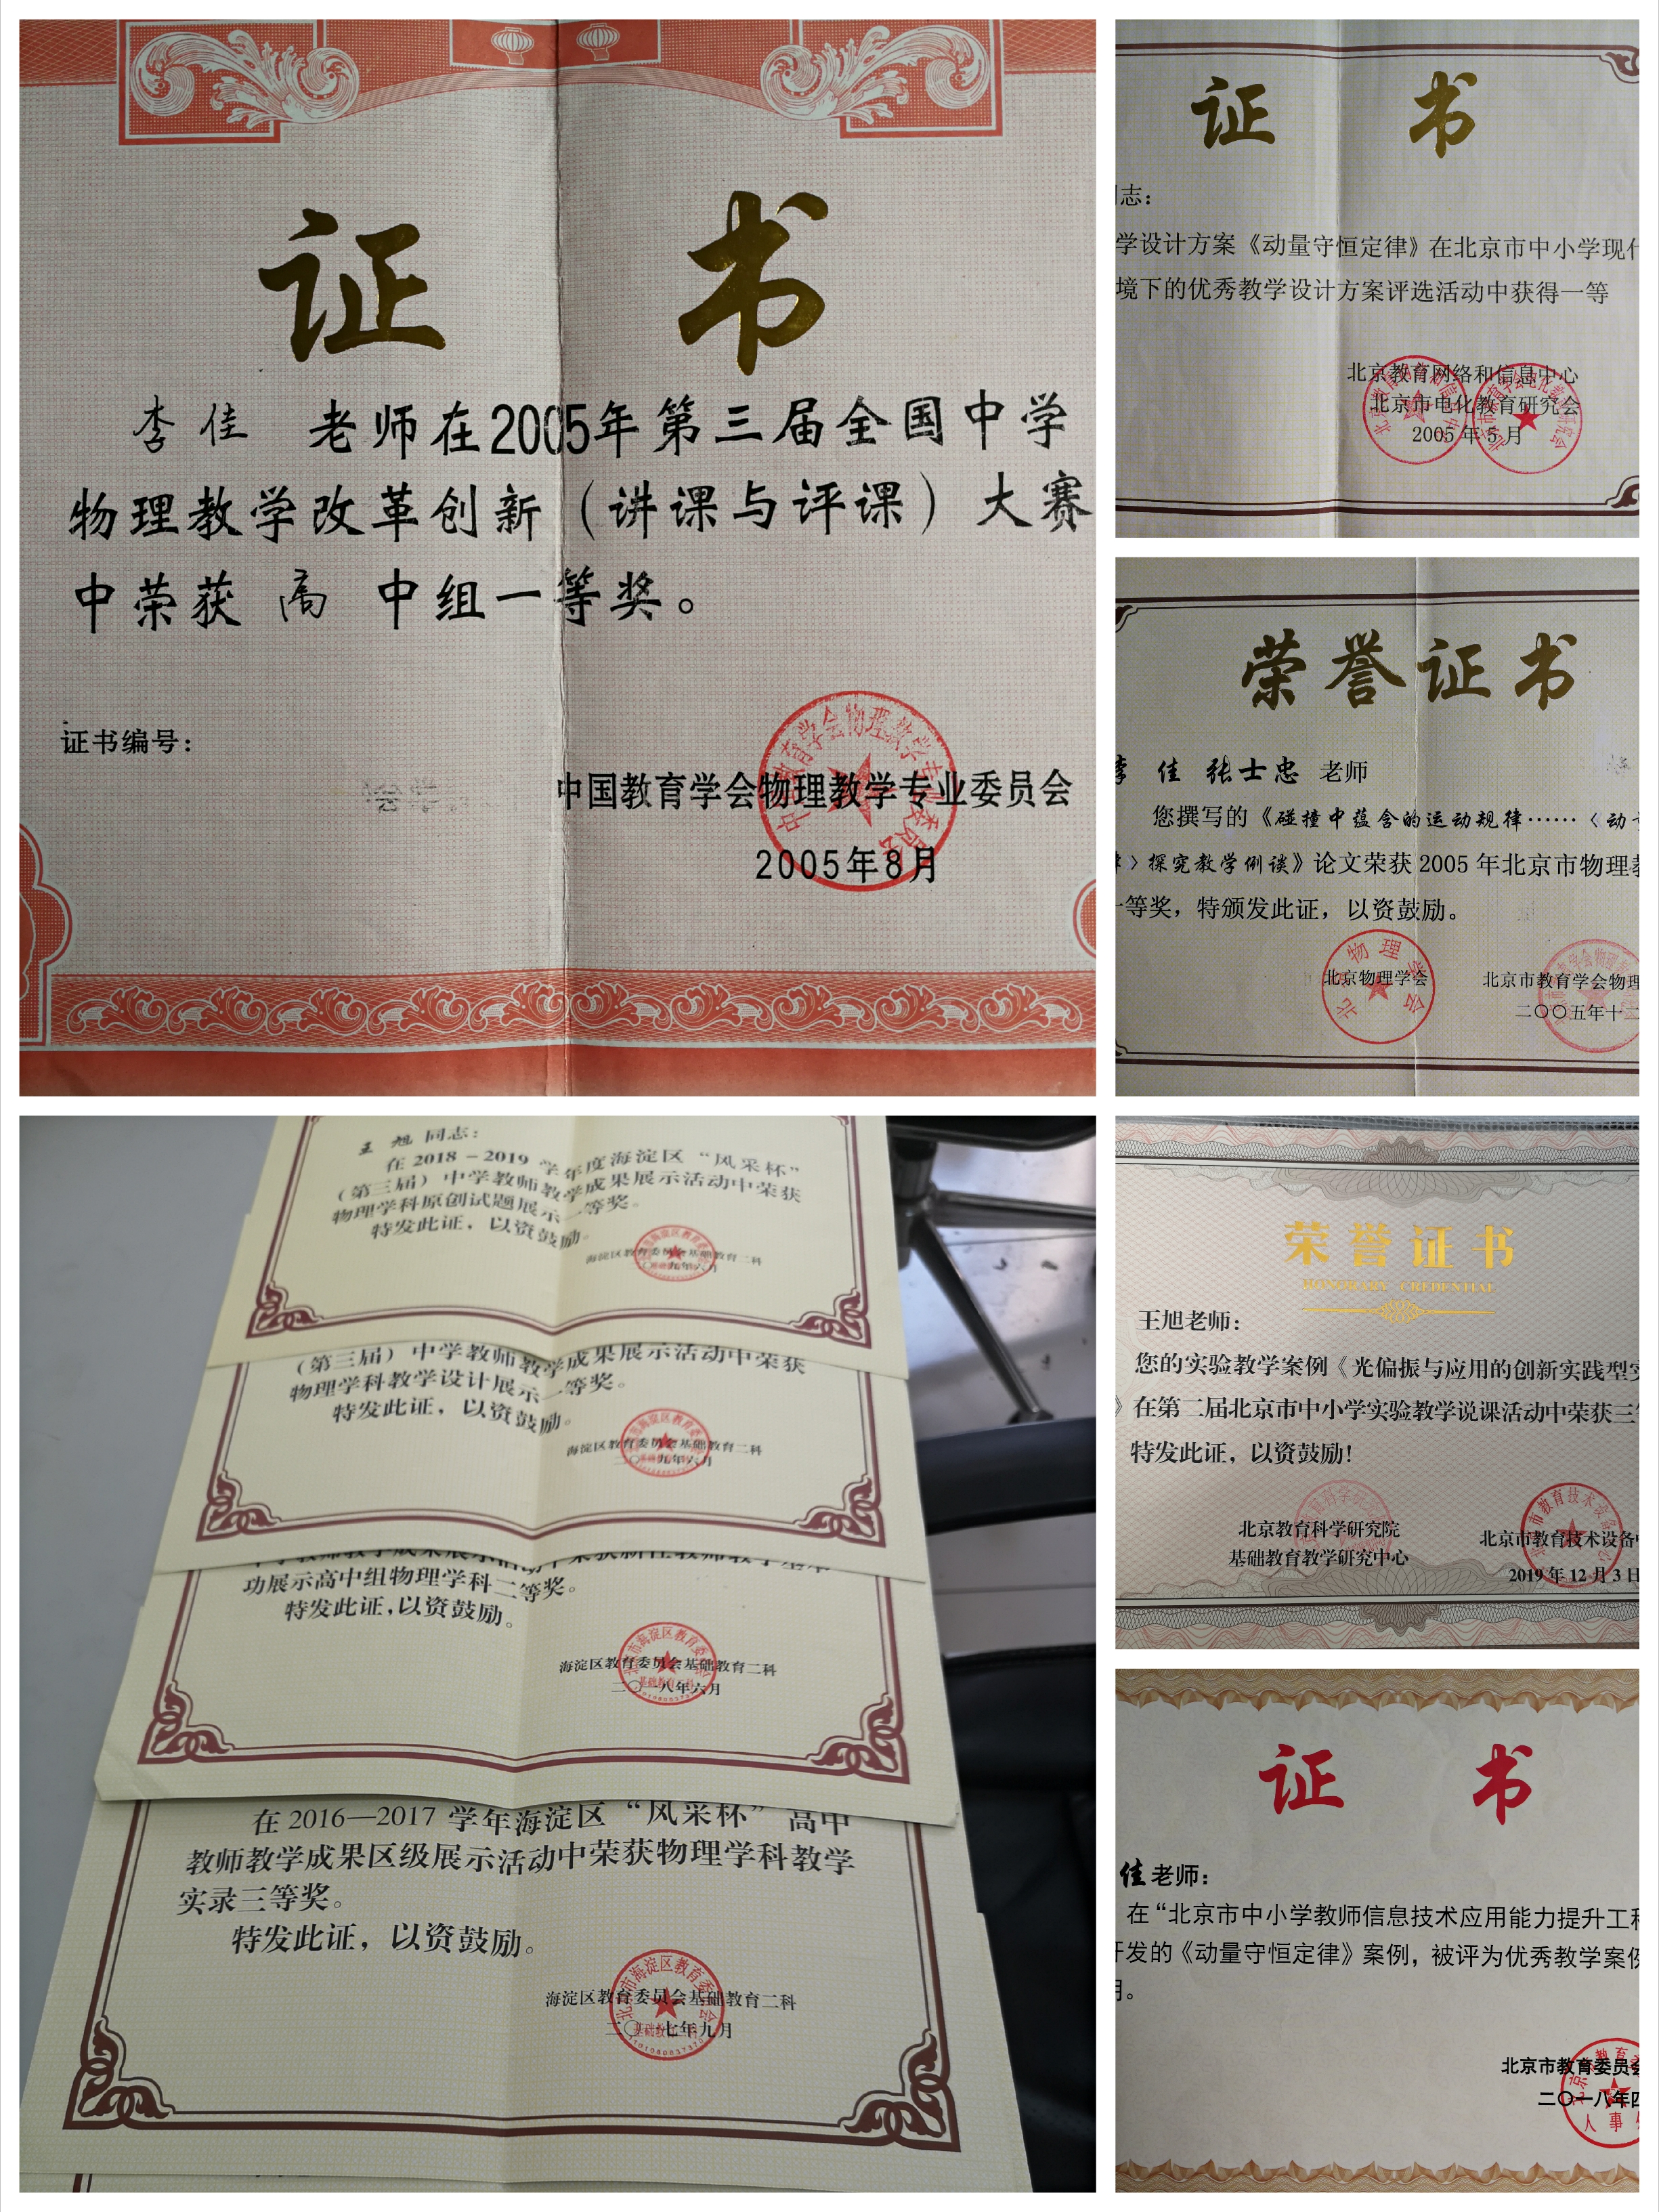 证 书
李佳 老师在2005年第三届全国中学
物理教学改革创新（讲课与评课）大赛
中荣获 高 中组一等奖。
证书编号：
中国教育学会物理教学专业委员会
2005年8月
证 书
志：
学设计方案《动量守恒定律》在北京市中小学现
境下的优秀教学设计方案评选活动中获得一等
北京教育网络和信息中心
北京市电化教育研究会
2005年5月
荣誉证书
佳 张士忠 老师
您撰写的《碰撞中蕴含的运动规律……〈动
〉探究教学例谈》论文荣获2005年北京市物理
一等奖，特颁发此证，以资鼓励。
北京物理学会
北京市教育学会物理
二〇〇五年十二
王旭 同志：
在2018-2019学年度海淀区“风采杯”
（第三届）中学教师教学成果展示活动中荣获
物理学科原创试题展示一等奖。
特发此证，以资鼓励。
海淀区教育委员会基础教育二科
二〇一九年六月
（第三届）中学教师教学成果展示活动中荣获
物理学科教学设计展示一等奖。
特发此证，以资鼓励。
海淀区教育委员会基础教育二科
二〇一九年六月
功展示高中组物理学科二等奖。
特发此证，以资鼓励。
海淀区教育委员会基础教育二科
二〇一八年六月
在2016—2017学年海淀区“风采杯”高中
教师教学成果区级展示活动中荣获物理学科教学
实录三等奖。
特发此证，以资鼓励。
海淀区教育委员会基础教育二科
二〇一七年九月
荣誉证书
HONORARY CREDENTIAL
王旭老师：
您的实验教学案例《光偏振与应用的创新实践型
》在第二届北京市中小学实验教学说课活动中荣获三
特发此证，以资鼓励！
北京教育科学研究院
基础教育教学研究中心
北京市教育技术设备
2019年12月3日
证 书
佳老师：
在“北京市中小学教师信息技术应用能力提升工
开发的《动量守恒定律》案例，被评为优秀教学案
北京市教育委员会
二〇一八年四